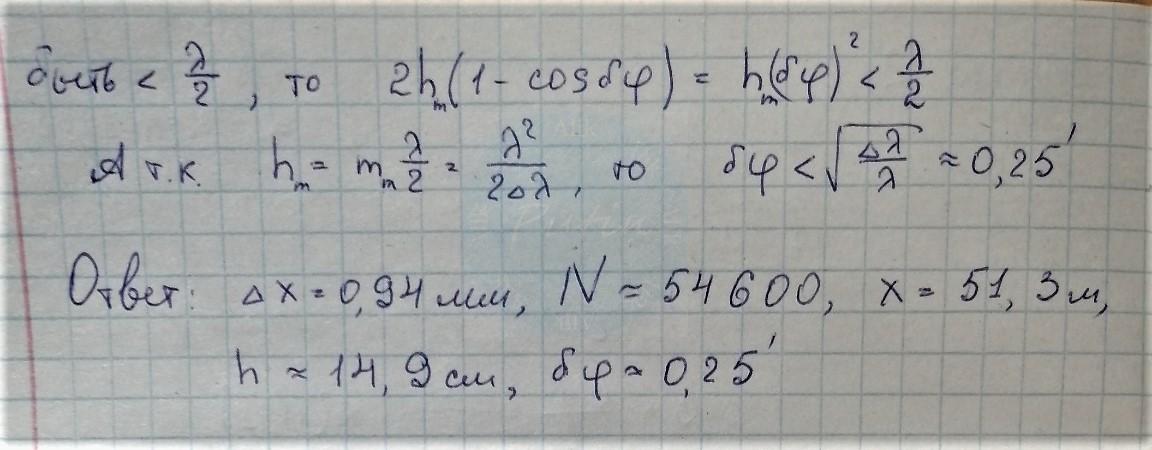 быть < λ/2, то 2hₘ(1 - cos δφ) = hₘ(δφ)² < λ/2
А т.к. hₘ = mₘ λ/2 = λ²/2Δλ, то δφ < √(Δλ/λ) ≈ 0,25'
Ответ: Δx = 0,94 мм, N ≈ 54600, x = 51,3 м,
h ≈ 14,9 см, δφ ≈ 0,25'